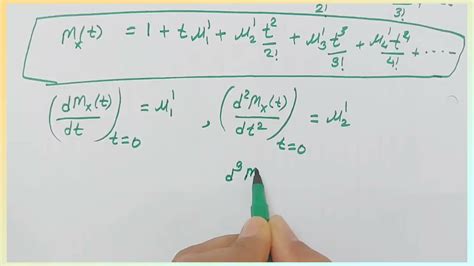 2! 3! 4!
M_x(t) = 1 + t μ_1' + μ_2' t^2/2! + μ_3' t^3/3! + μ_4' t^4/4! + ----
(dM_x(t)/dt)_{t=0} = μ_1' , (d^2 M_x(t)/dt^2)_{t=0} = μ_2'
d^3 M